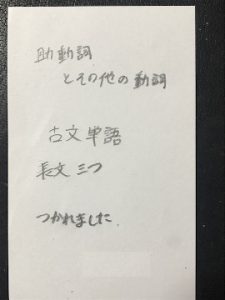 助動詞
とその他の動詞
古文単語
長文三つ
つかれました